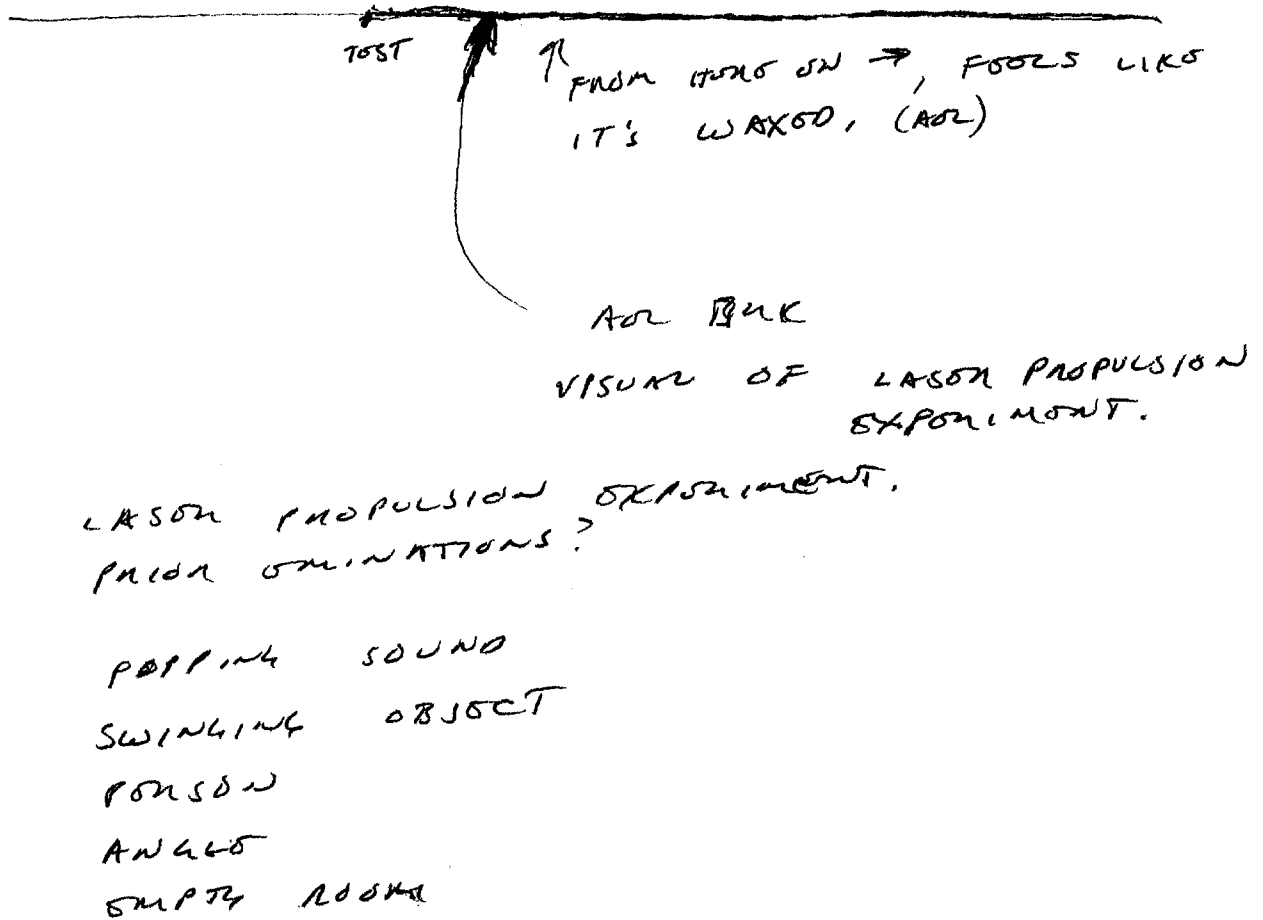 TEST
FROM HERE ON →, FEELS LIKE
IT'S WAXED, (AOL)
AOL BRK
VISUAL OF LASER PROPULSION
EXPERIMENT.
LASER PROPULSION EXPERIMENT.
PRIOR EMINATIONS?
POPPING SOUND
SWINGING OBJECT
PERSON
ANGLE
EMPTY ROOM